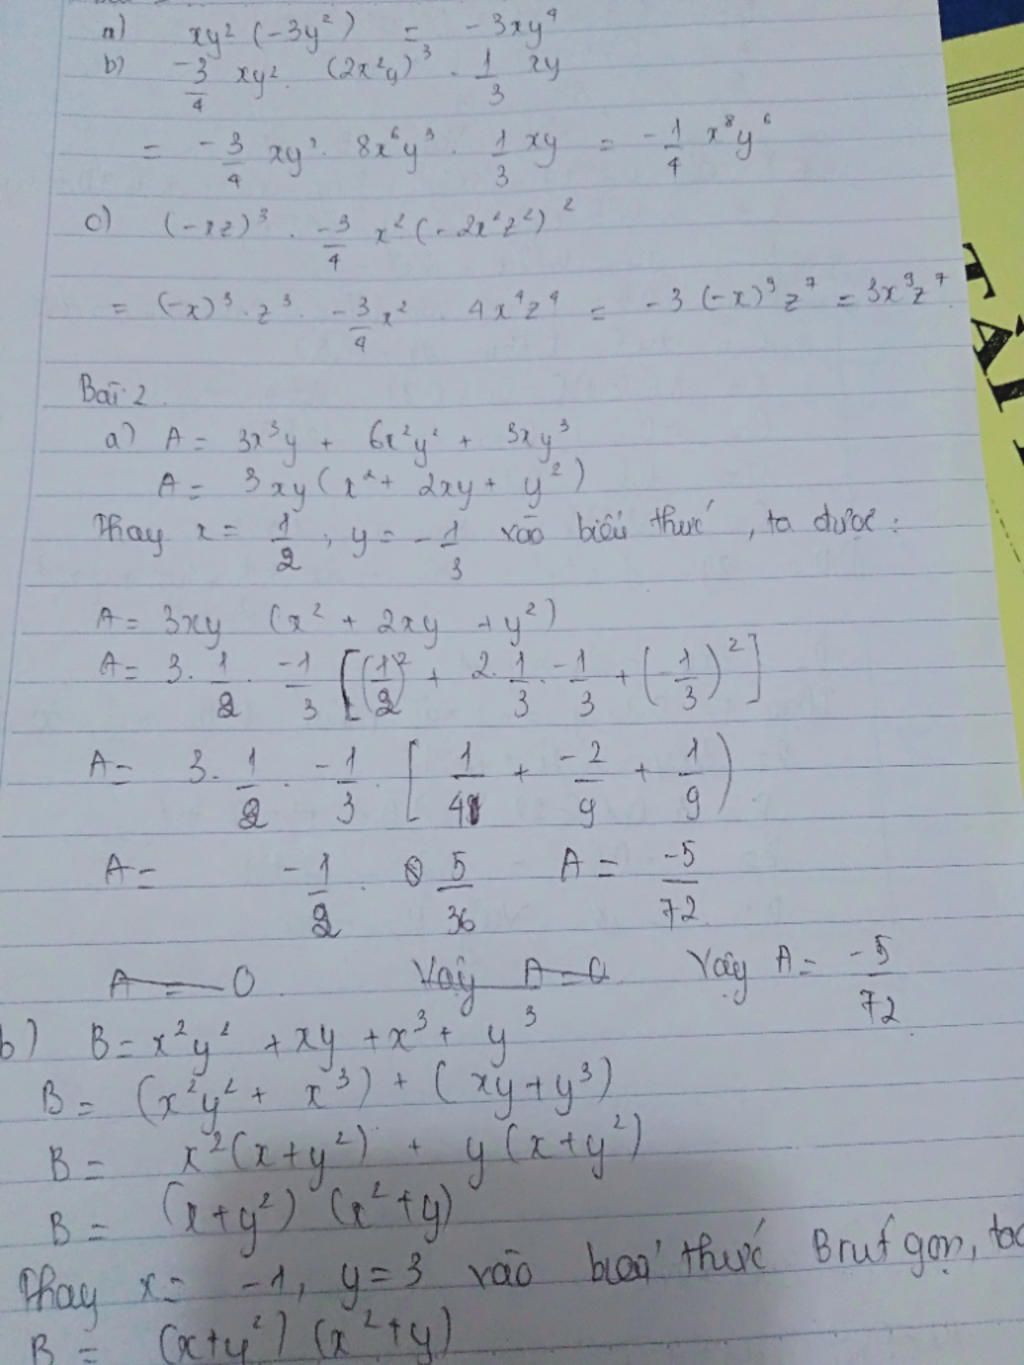 a) xy² (-3y²) = -3xy⁴
b) -3/4 xy² . (2x²y)³ . 1/3 xy
= -3/4 xy² . 8x⁶y³ . 1/3 xy = -1/4 x⁸y⁶
c) (-xz)³ . -3/4 x² (-2x²z²)²
= (-x)³ . z³ . -3/4 x² . 4x⁴z⁴ = -3 (-x)⁹ z⁷ = 3x⁹z⁷.
Bài 2.
a) A = 3x³y + 6x²y² + 3xy³
A = 3xy (x² + 2xy + y²)
Thay x = 1/2, y = -1/3 vào biểu thức, ta được:
A = 3xy (x² + 2xy + y²)
A = 3. 1/2 . -1/3 [(1/2)² + 2. 1/3 . -1/3 + (-1/3)²]
A = 3. 1/2 . -1/3 . [1/4 + -2/9 + 1/9)
A = -1/2 . 5/36 A = -5/72
A = 0 Vậy A = 0 Vậy A = -5/72
b) B = x²y² + xy + x³ + y³
B = (x²y² + x³) + (xy + y³)
B = x²(x+y²) + y(x+y²)
B = (x+y²) (x²+y)
Thay x = -1, y = 3 vào biểu thức B rút gọn, ta
B = (x+y²) (x²+y)
TẬ